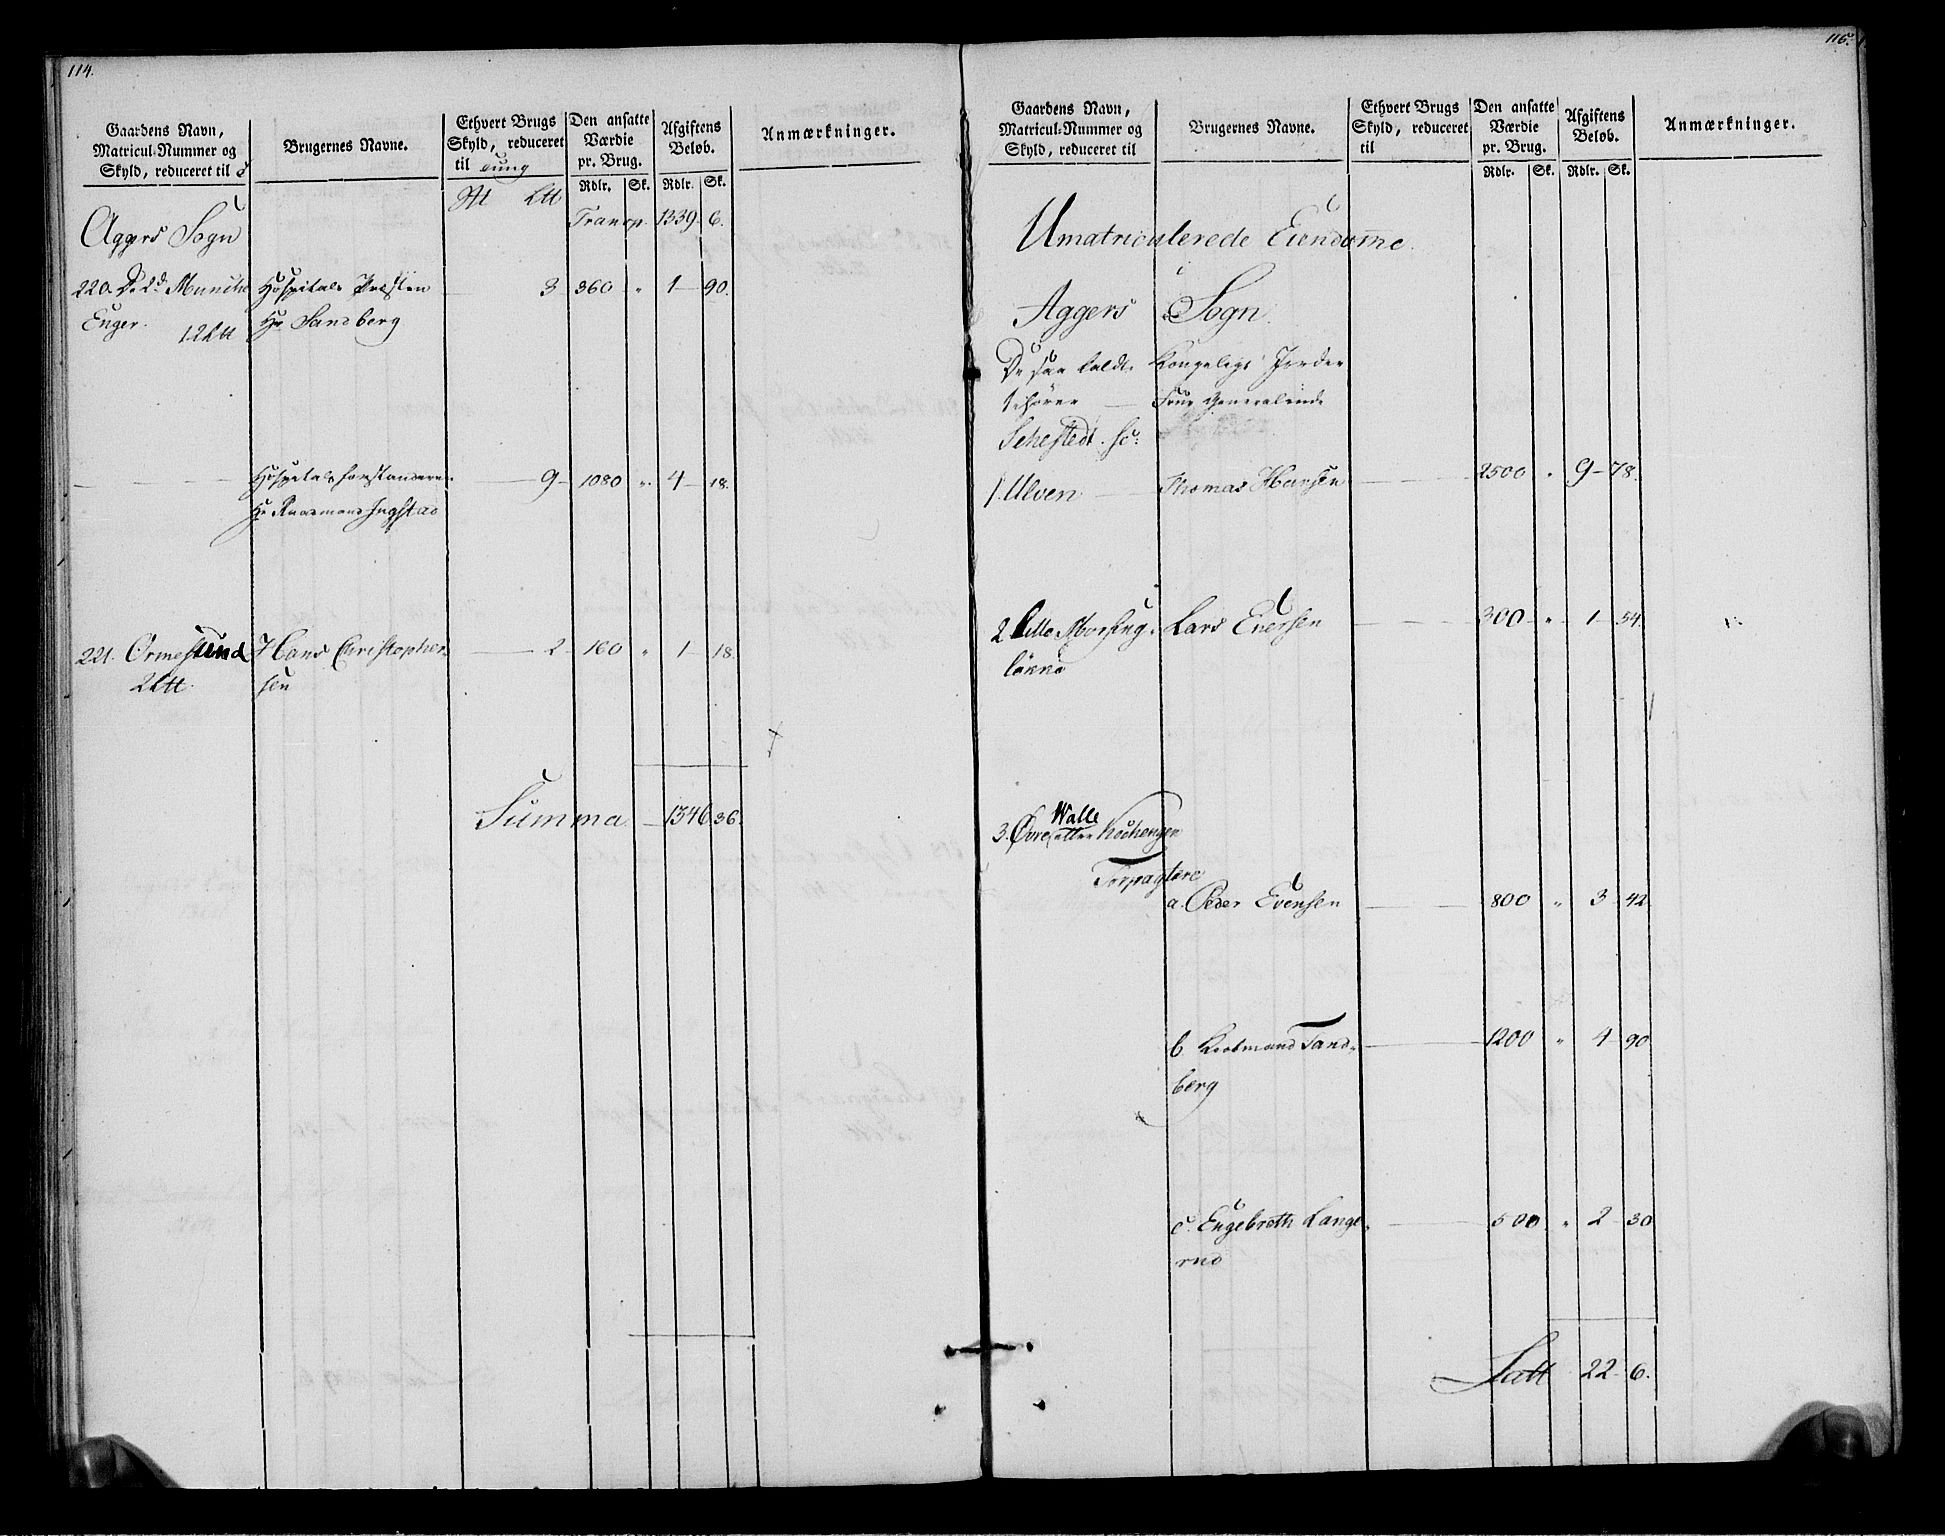 114.
Gaardens Navn,
Matricul-Nummer og
Skyld, reduceret til
Brugernes Navne.
Ethvert Brugs
Skyld, reduceret
til tung
Den ansatte
Værdie
pr. Brug.
Afgiftens
Beløb.
Anmærkninger.
Rdlr. Sk. Rdlr. Sk.
Aggers Sogn
Transp. 1339 6.
220. Munche Hospitals Præsten 3 360 " 1 90.
Enger. 12 Hr Sandberg
Hospitals forstanderen 9 1080 " 4 18.
Hr Ingstad
221. Ormesund Hans Christopher 2 160 " 1 18.
2 sen
Summa 1346 36.
115.
Gaardens Navn,
Matricul-Nummer og
Skyld, reduceret til
Brugernes Navne.
Ethvert Brugs
Skyld, reduceret
til
Den ansatte
Værdie
pr. Brug.
Afgiftens
Beløb.
Anmærkninger.
Rdlr. Sk. Rdlr. Sk.
Umatriculerede Eiendomme
Aggers Sogn.
De saa kaldte Kongelige Jorder
tilhører Frue Generalinde
Sehestedt.
1. Ulven Thomas Hansen 2500 " 9 78.
2 Lille Morsing Lars Evensen 300 " 1 54.
3. Øvre Walle eller Kochengen
Forpagtere
a. Peder Evensen 800 " 3 42
b Kiøbmand Tand-
berg 1200 " 4 90
c. Engebreth Lange- 500 " 2 30
rud
Latt 22 6.